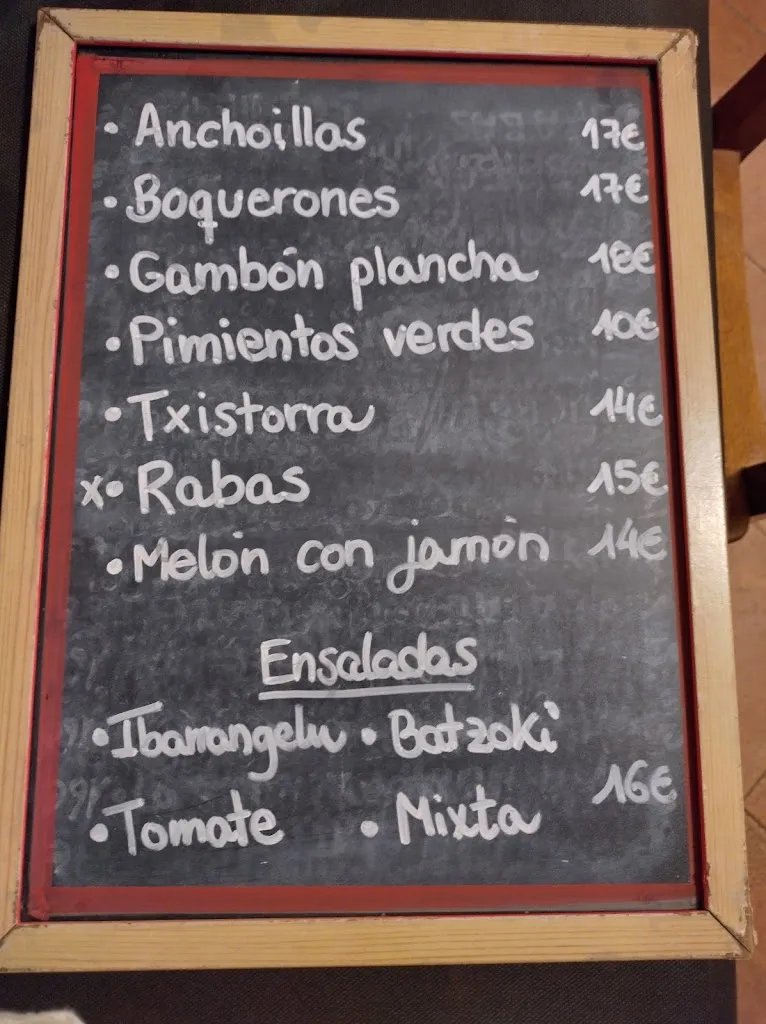 • Anchoillas 17€
• Boquerones 17€
• Gambón plancha 18€
• Pimientos verdes 10€
• Txistorra 14€
x• Rabas 15€
• Melón con jamón 14€
Ensaladas
• Ibarrangelu • Batzoki
16€
• Tomate • Mixta